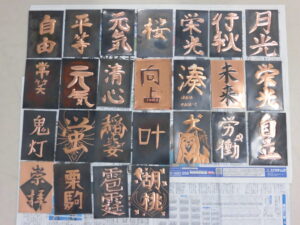 自由
平等
元気
桜
栄光
行秋
月光
常笑
元気
清心
向上
湊
未来
栄光
鬼灯
蛍
稲妻
叶
労働
自立
崇拝
栗駒
雹霆
胡桃